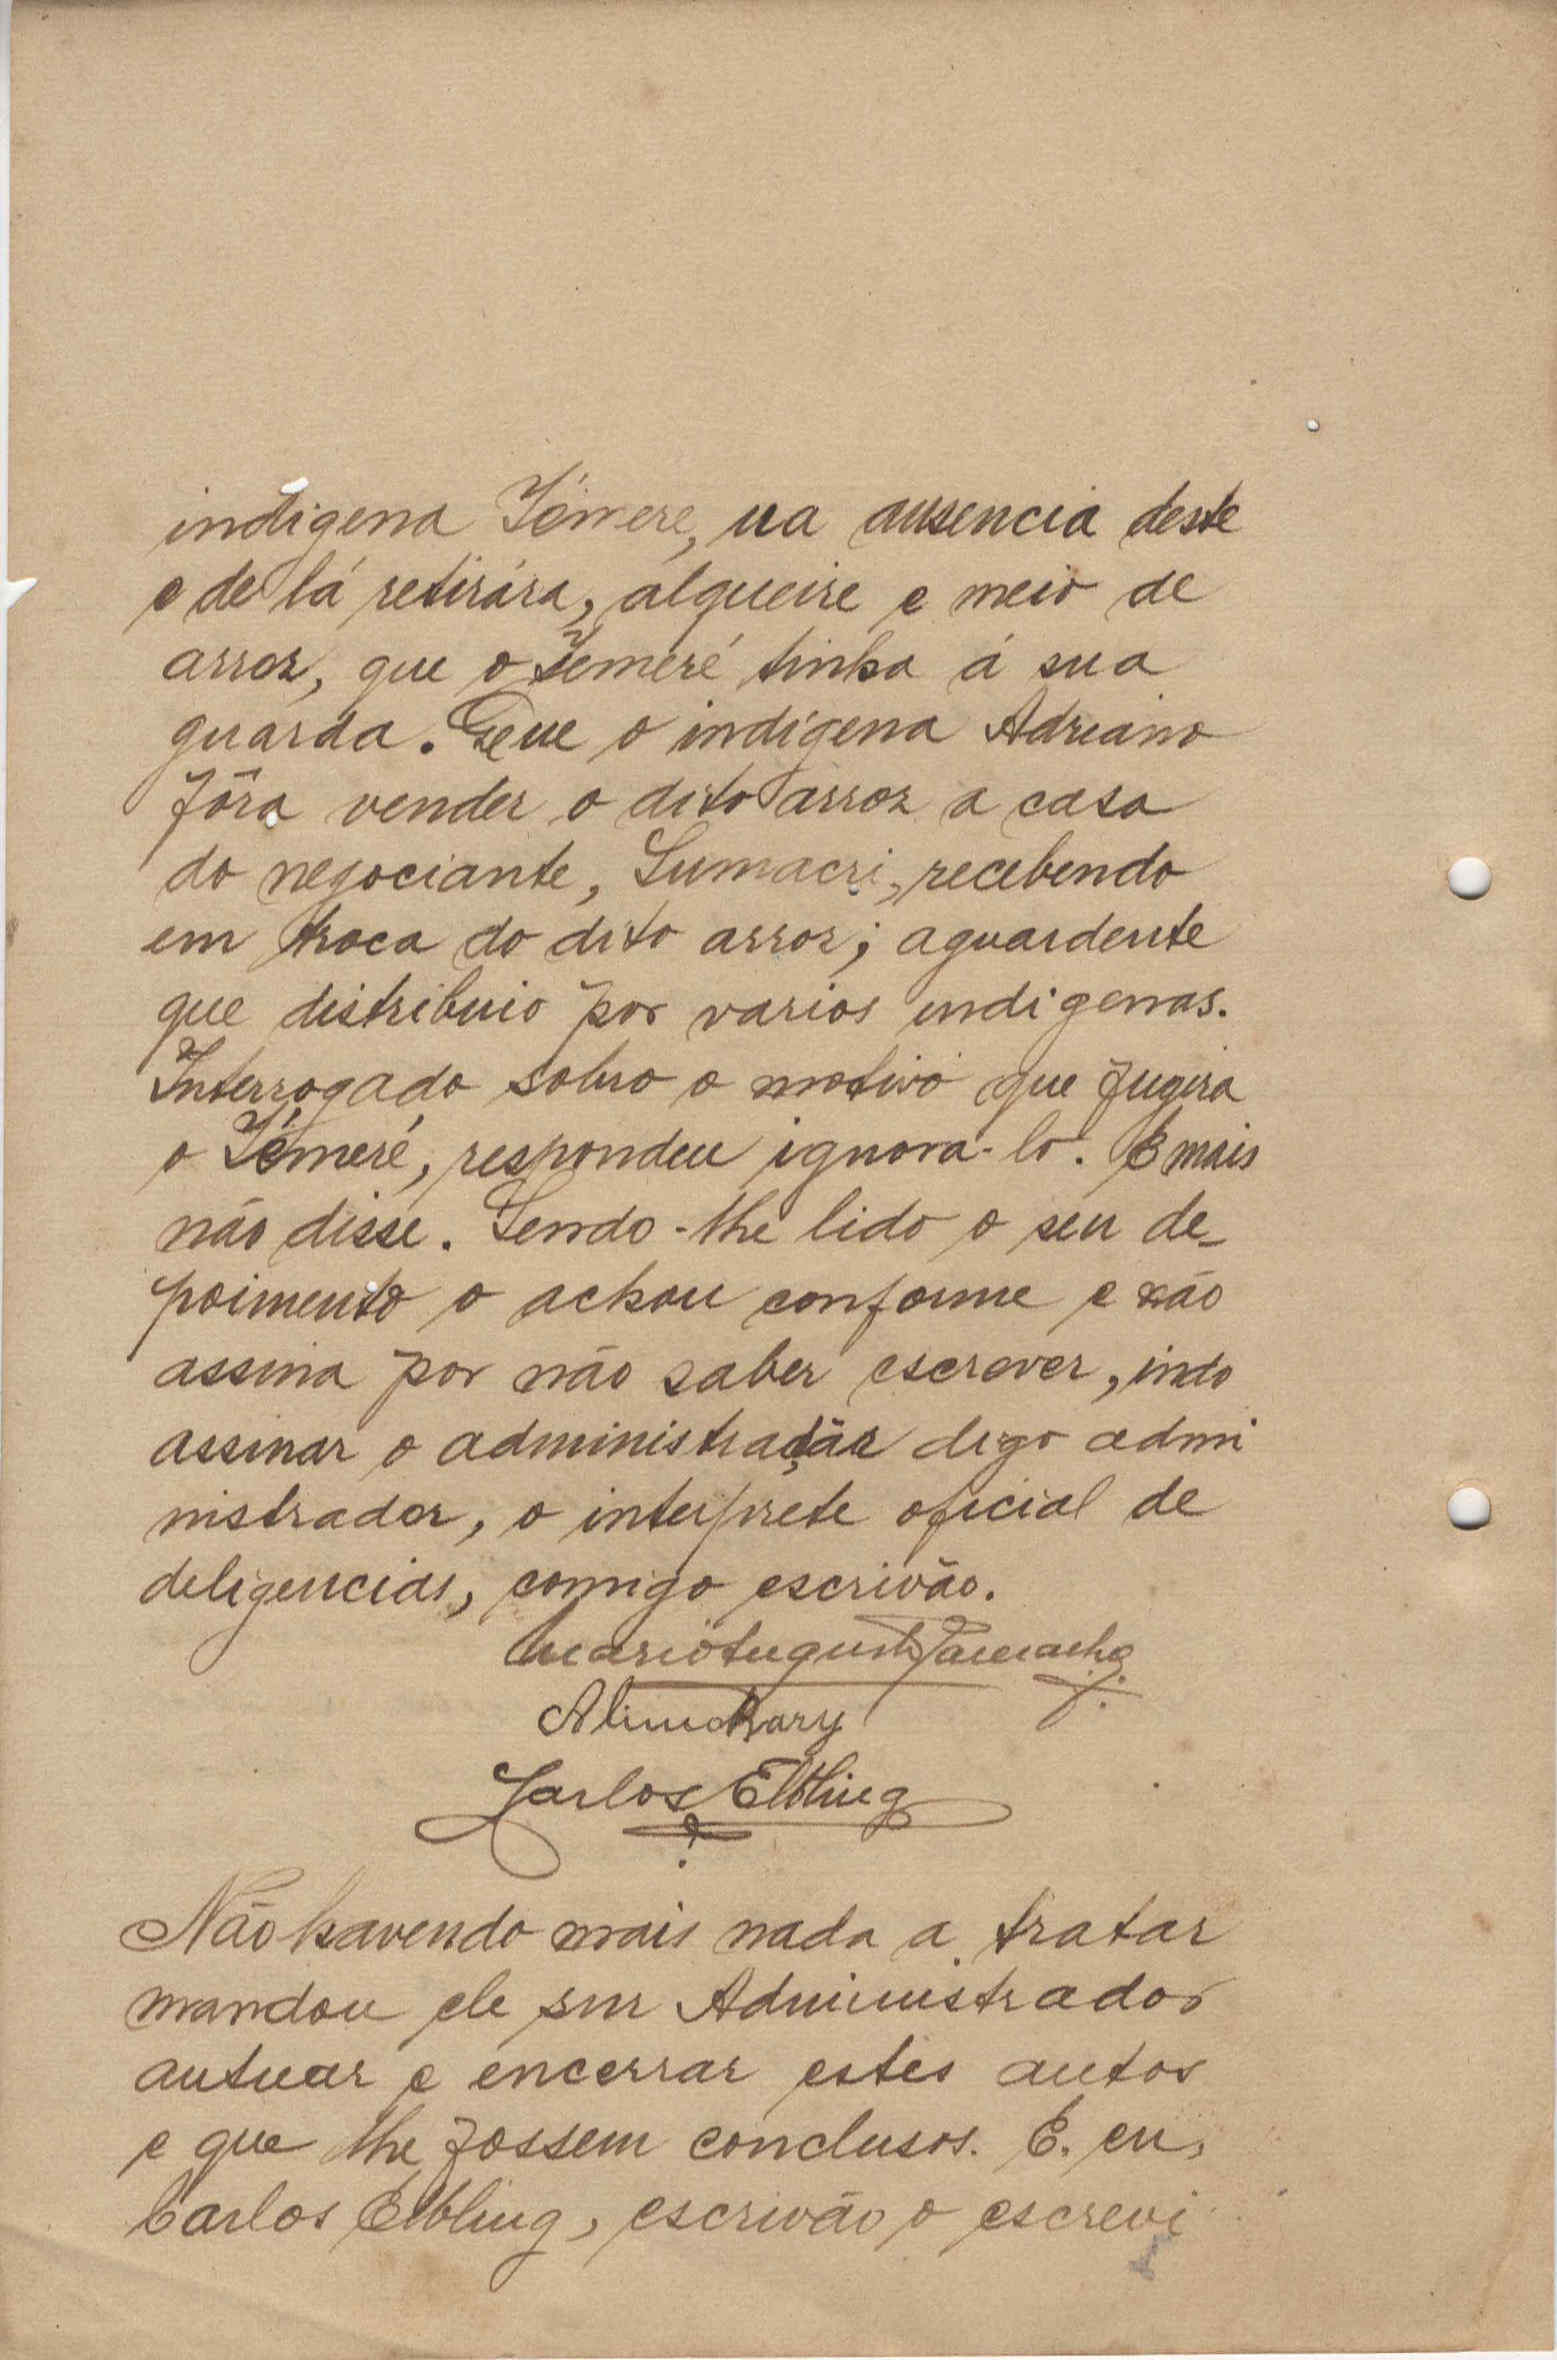 indigena Témere, na ausencia deste
e de lá retirára, alqueire e meio de
arroz, que o Témeré tinha á sua
guarda. Que o indígena Adriano
fôra vender o dito arroz a casa
do negociante, Sumacri, recebendo
em troca do dito arroz; aguardente
que distribuio por varios indigenas.
Interrogado sobro o motivo que fugira
o Témeré, respondeu ignora-lo. E mais
não disse. Sendo-lhe lido o seu de-
poimento o achou conforme e não
assina por não saber escrever, indo
assinar o administração digo admi
nistrador, o interprete oficial de
deligencias, comigo escrivão.
Mario Augusto
Carlos Elbling
Não havendo mais nada a tratar
mandou ele snr Administrador
autuar e encerrar estes autos
e que lhe fossem conclusos. E. eu,
Carlos Elbling, escrivão o escrevi